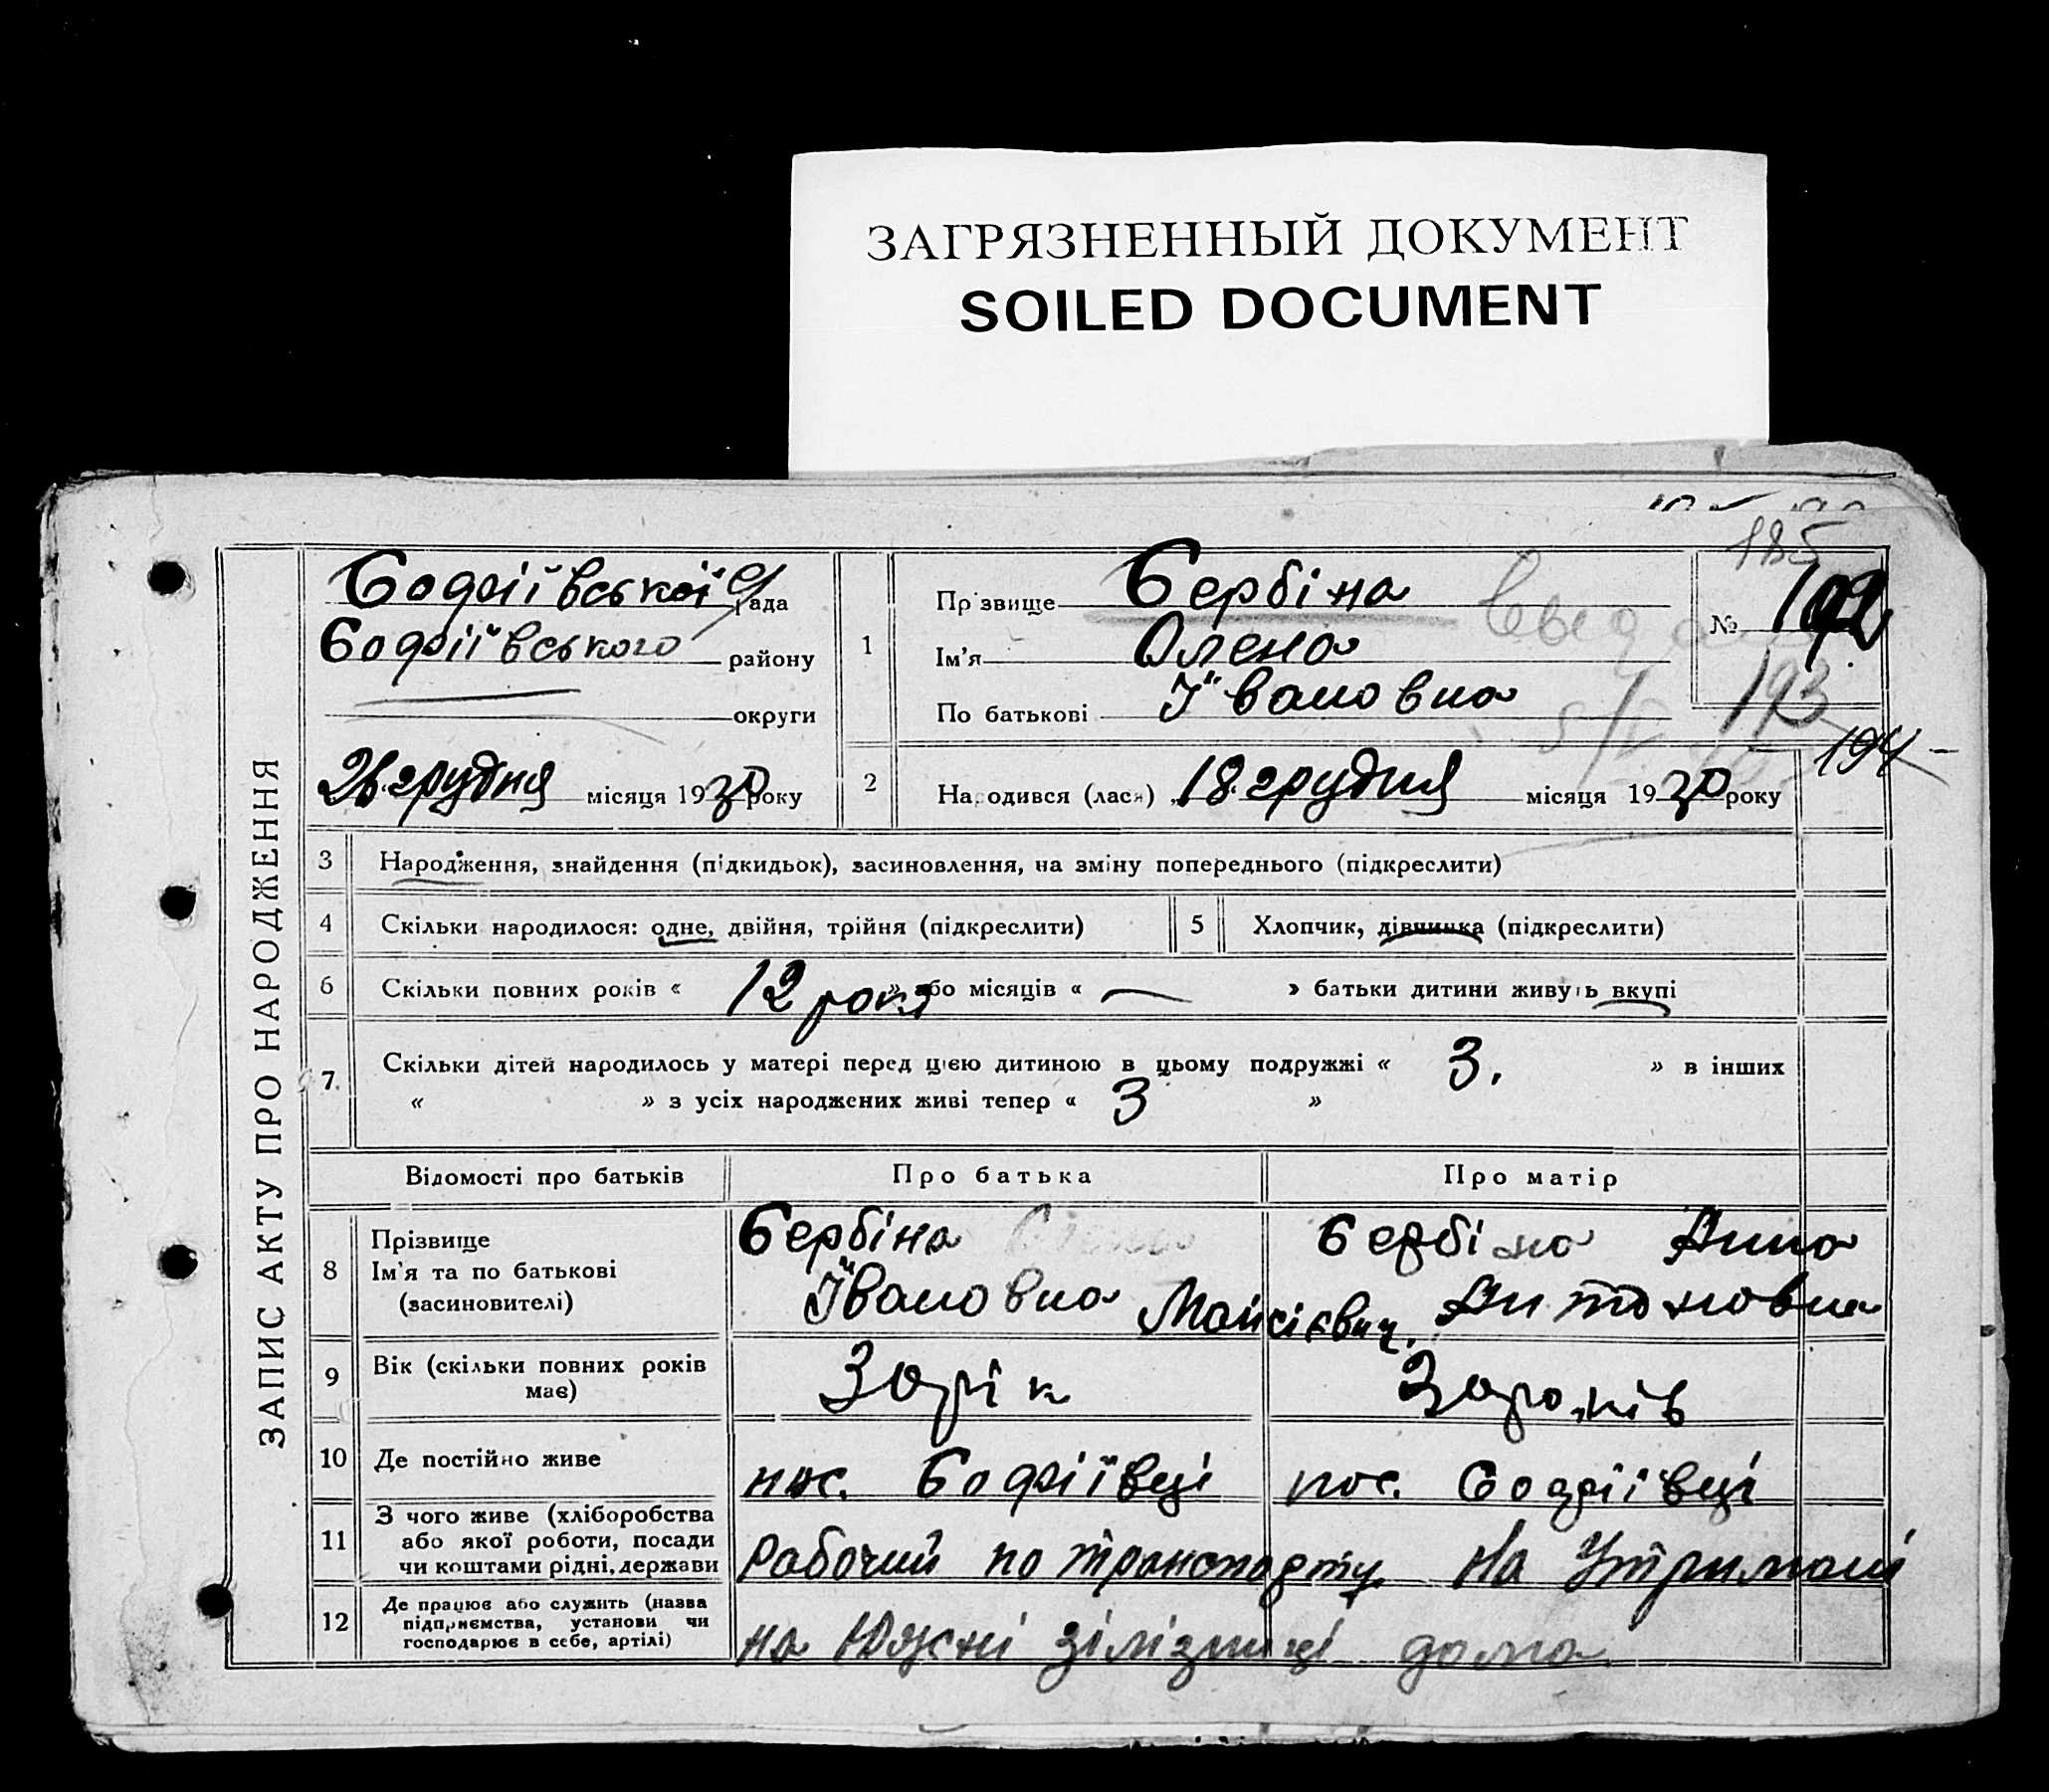 ЗАГРЯЗНЕННЫЙ ДОКУМЕНТ
SOILED DOCUMENT
185
ЗАПИС АКТУ ПРО НАРОДЖЕННЯ
Софіївської рада
Софіївського району
округи
26 грудня місяця 1930 року
1
Прізвище Сербіна
Ім'я Олена
По батькові Івановна
№ 192
193
194
2 Народився (лася) 18 грудня місяця 1930 року
3 Народження, знайдення (підкидьок), засиновлення, на зміну попереднього (підкреслити)
4 Скільки народилося: одне, двійня, трійня (підкреслити) 5 Хлопчик, дівчинка (підкреслити)
6 Скільки повних років « 12 рокі » або місяців « — » батьки дитини живуть вкупі
7. Скільки дітей народилось у матері перед цією дитиною в цьому подружжі « 3. » в інших
« » з усіх народжених живі тепер « 3 »
Відомості про батьків Про батька Про матір
8 Прізвище Ім'я та по батькові (засиновителі) Сербіна Івановна Мойсієвич. Сербіна Анна Антоновна
9 Вік (скільки повних років має) 30 рік 30 років
10 Де постійно живе пос. Софіївці пос. Софіївці
11 З чого живе (хліборобства або якої роботи, посади чи коштами рідні, держави Рабочий по транспорту. На Утримані
12 Де працює або служить (назва підприємства, установи чи господарює в себе, артілі) на Южні зілізниці дома